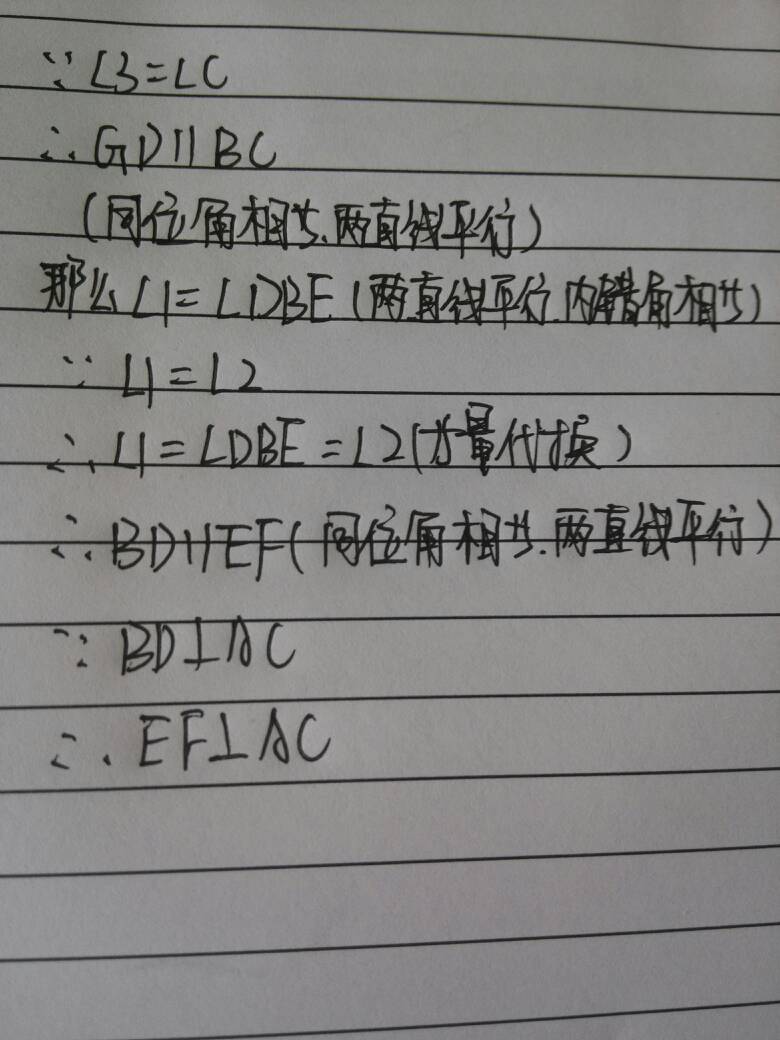 ∵∠3=∠C
∴GD∥BC
(同位角相等.两直线平行)
那么∠1=∠DBE(两直线平行.内错角相等)
∵∠1=∠2
∴∠1=∠DBE=∠2(等量代换)
∴BD∥EF(同位角相等.两直线平行)
∵BD⊥AC
∴EF⊥AC